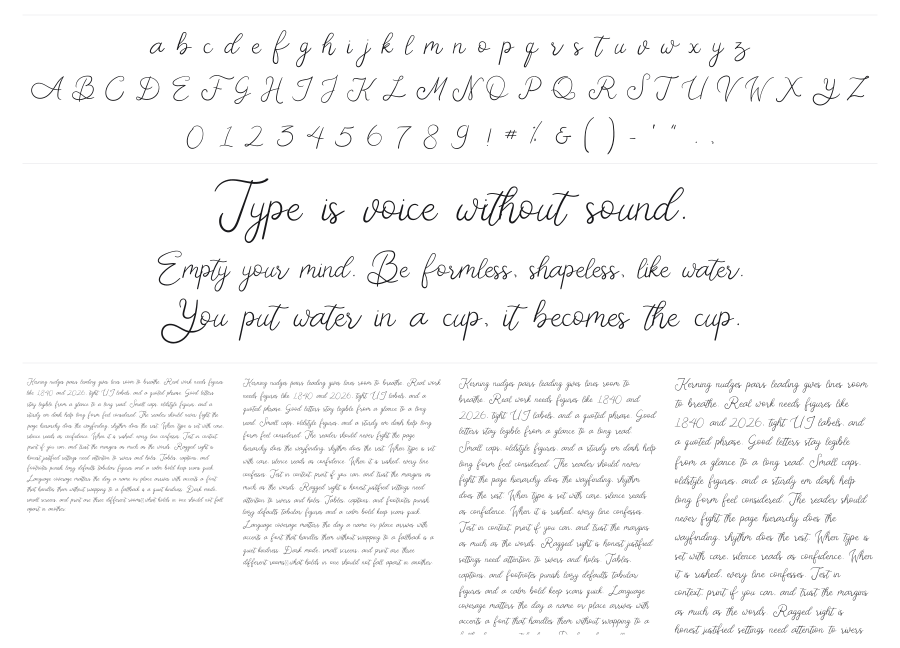 a b c d e f g h i j k l m n o p q r s t u v w x y z
A B C D E F G H I J K L M N O P Q R S T U V W X Y Z
0 1 2 3 4 5 6 7 8 9 ! # % & ( ) - ' " . ,
Type is voice without sound.
Empty your mind. Be formless, shapeless, like water.
You put water in a cup, it becomes the cup.
Kerning nudges pairs leading give lines room to breathe. Real work needs figures
like 1840 and 2026, tight UI labels, and a quoted phrase. Good letters
stay legible from a glance to a long read. Small caps, oldstyle figures, and a
sturdy em dash help long form feel considered. The reader should never fight the
page hierarchy does the wayfinding, rhythm does the rest. When type is set with care,
silence reads as confidence. When it is rushed, every line confesses. Test in context,
print if you can, and trust the margins as much as the words. Ragged right is
honest justified settings need attention to rivers and holes. Tables, captions, and
footnotes punish lazy defaults tabular figures and a calm bold keep scans quick.
Language coverage matters the day a name or place arrives with accents a font
that handles them without swapping to a fallback is a quiet kindness. Dark mode,
small screens, and print are three different rooms what holds in one should not fall
apart in another.
Kerning nudges pairs leading give lines room to breathe. Real work
needs figures like 1840 and 2026, tight UI labels, and a
quoted phrase. Good letters stay legible from a glance to a long
read. Small caps, oldstyle figures, and a sturdy em dash help long
form feel considered. The reader should never fight the page
hierarchy does the wayfinding, rhythm does the rest. When type is set
with care, silence reads as confidence. When it is rushed, every line
confesses. Test in context, print if you can, and trust the margins as
much as the words. Ragged right is honest justified settings need
attention to rivers and holes. Tables, captions, and footnotes punish
lazy defaults tabular figures and a calm bold keep scans quick.
Language coverage matters the day a name or place arrives with
accents a font that handles them without swapping to a fallback is a
quiet kindness. Dark mode, small screens, and print are three
different rooms what holds in one should not fall apart in another.
Kerning nudges pairs leading gives lines room to
breathe. Real work needs figures like 1840 and
2026, tight UI labels, and a quoted phrase. Good
letters stay legible from a glance to a long read.
Small caps, oldstyle figures, and a sturdy em dash help
long form feel considered. The reader should never
fight the page hierarchy does the wayfinding, rhythm
does the rest. When type is set with care, silence reads
as confidence. When it is rushed, every line confesses.
Test in context, print if you can, and trust the margins
as much as the words. Ragged right is honest justified
settings need attention to rivers and holes. Tables,
captions, and footnotes punish lazy defaults tabular
figures and a calm bold keep scans quick. Language
coverage matters the day a name or place arrives with
accents a font that handles them without swapping to a
Kerning nudges pairs leading gives lines room
to breathe. Real work needs figures like
1840 and 2026, tight UI labels, and
a quoted phrase. Good letters stay legible
from a glance to a long read. Small caps,
oldstyle figures, and a sturdy em dash help
long form feel considered. The reader should
never fight the page hierarchy does the
wayfinding, rhythm does the rest. When type is
set with care, silence reads as confidence. When
it is rushed, every line confesses. Test in
context, print if you can, and trust the margins
as much as the words. Ragged right is
honest justified settings need attention to rivers